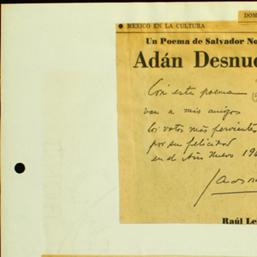 DOM
MEXICO EN LA CULTURA
Un Poema de Salvador No
Adán Desnud
Con este poema
van a mis amigos
los votos más fervientes
por su felicidad
en el Año Nuevo 19
Raúl Le